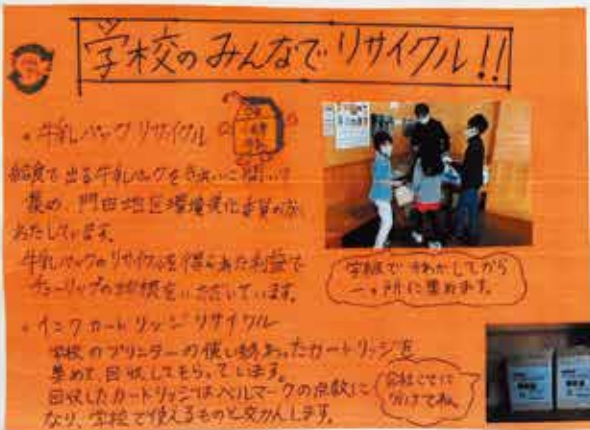 学校のみんなでリサイクル!!
・牛乳パックリサイクル
給食で出る牛乳パックをきれいに開いて
集め、門田地区環境美化委員の方
わたしています。
牛乳パックのリサイクルを得られた利益で
チューリップの球根をいただいています。
学級でかわかしてから
一ヶ所に集めます。
・インクカートリッジリサイクル
学校のプリンターの使い終わったカートリッジを
集めて、回収してもらっています。
回収したカートリッジはベルマークの点数に
なり、学校で使えるものと交かんします。
会社ごとに
分けてね。